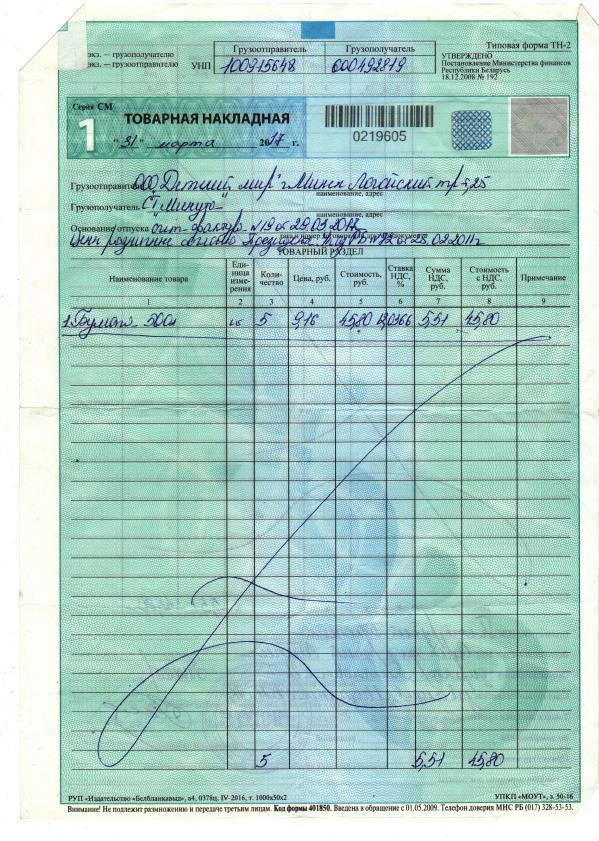 экз. — грузополучателю
экз. — грузоотправителю
УНП
Грузоотправитель
Грузополучатель
100915648
600492819
Типовая форма ТН-2
УТВЕРЖДЕНО
Постановление Министерства финансов
Республики Беларусь
18.12.2008 № 192
Серия СМ
1
ТОВАРНАЯ НАКЛАДНАЯ
"31" марта 2017 г.
0219605
Грузоотправитель ООО "Детский мир" г. Минск Логойский тр-т, 25
наименование, адрес
Грузополучатель СТ
наименование, адрес
Основание отпуска счет-фактура №19 от 29.03.2017г
28.02.2011г
ТОВАРНЫЙ РАЗДЕЛ
Наименование товара
Единица измерения
Количество
Цена, руб.
Стоимость, руб.
Ставка НДС, %
Сумма НДС, руб.
Стоимость с НДС, руб.
Примечание
1 2 3 4 5 6 7 8 9
1. Бумага 500л 5 9,16 45,80 5,51 45,80
5 5,51 45,80
РУП «Издательство «Белбланкавыд», а4, 0378ц, IV-2016, т. 1000х50х2
УПКП «МОУТ», з. 50-16
Внимание! Не подлежит размножению и передаче третьим лицам. Код формы 401850. Введена в обращение с 01.05.2009. Телефон доверия МНС РБ (017) 328-53-53.